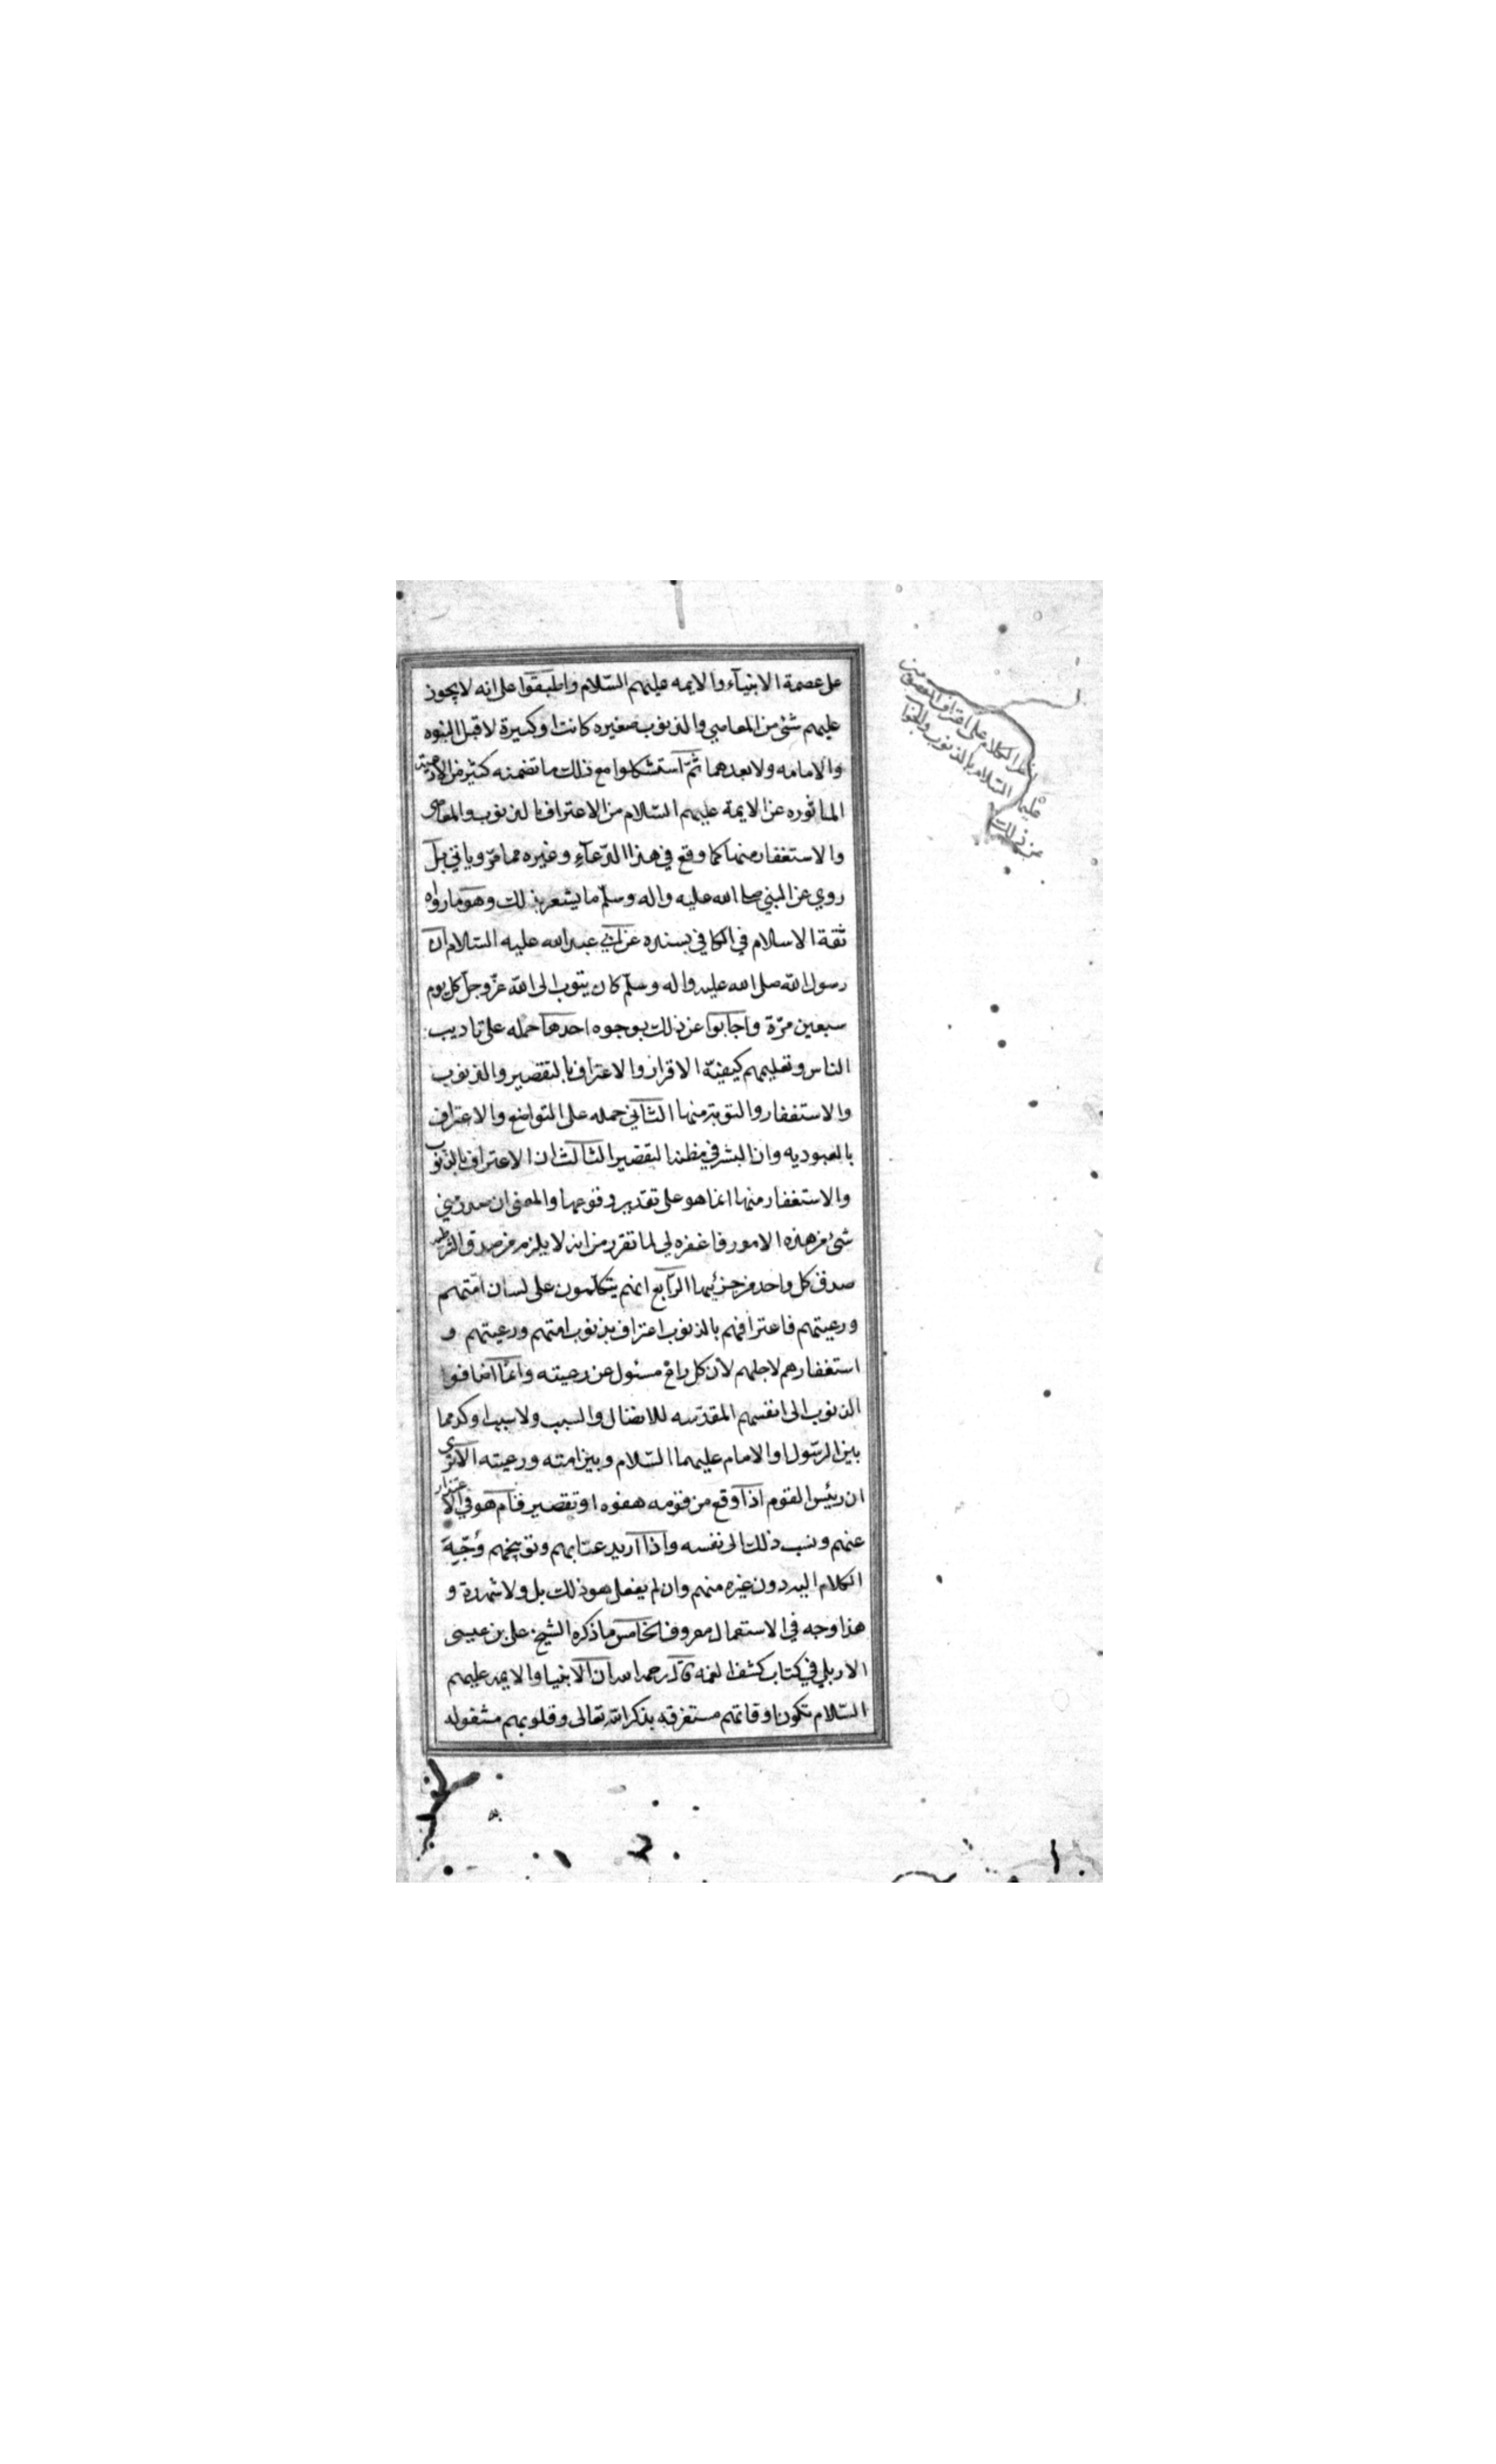 على عصمة الانبيآء والايمه عليهم السّلام واطبقوا على انه لا يجوز
عليهم شئ من المعاصي والذنوب صغيره كانت او كبيرة لا قبل النبوه
والامامه ولا بعدهما ثمّ استشكلوا مع ذلك ما تضمنه كثير من الادعية
الماثوره عن الايمة عليهم السّلام من الاعتراف بالذنوب والمعاصي
والاستغفار منها كما وقع في هذا الدّعآء وغيره مما مرّ وياتي بل
روي عن النبي صلى الله عليه واله وسلّم ما يشعر بذلك وهو ما رواه
ثقة الاسلام في الكافي بسنده عن ابي عبد الله عليه السّلام ان
رسول الله صلى الله عليه واله وسلّم كان يتوب الى الله عزّ وجلّ كل يوم
سبعين مرّة واجابوا عن ذلك بوجوه احدها حمله على تاديب
الناس وتعليمهم كيفيّة الاقرار والاعتراف بالتقصير والذنوب
والاستغفار والتوبة منها الثاني حمله على التواضع والاعتراف
بالعبوديه وان البشر في مظنة التقصير الثالث ان الاعتراف بالذنوب
والاستغفار منها انما هو على تقدير وقوعها والمعنى ان صدر مني
شئ من هذه الامور فاغفره لي لما تقرر من انه لا يلزم من صدق الشرطية
صدق كل واحد من جزئيها الرّابع انهم يتكلّمون على لسان امّتهم
ورعيتهم فاعترافهم بالذنوب اعتراف بذنوب امتهم ورعيتهم و
استغفارهم لاجلهم لأن كل راعٍ مسئول عن رعيته وانّما اضافوا
الذنوب الى انفسهم المقدّسه للاتصال والسبب ولا سبب اوكد مما
بين الرسول او الامام عليهما السّلام وبين امته ورعيته الا ترى
ان رئيس القوم اذا وقع من قومه هفوه او تقصير قام هو في الاعتذار
عنهم ونسب ذلك الى نفسه واذا اريد عتابهم وتوبيخهم وُجّهَ
الكلام اليه دون غيره منهم وان لم يفعل هو ذلك بل ولا شهده و
هذا وجه في الاستعمال معروف الخامس ما ذكره الشيخ علي بن عيسى
الاربلي في كتاب كشف الغمه قال رحمه الله ان الانبيا والايمه عليهم
السّلام تكون اوقاتهم مستغرقه بذكر الله تعالى وقلوبهم مشغوله
انظر الكلام على اعتراف المعصومين
عليهم السّلام بالذنوب والجواب
عن ذلك